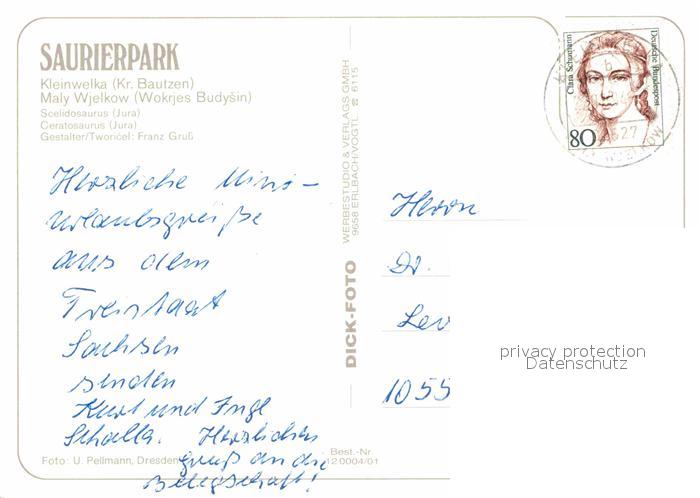 SAURIERPARK
Kleinwelka (Kr. Bautzen)
Maly Wjelkow (Wokrjes Budyšin)
Scelidosaurus (Jura)
Ceratosaurus (Jura)
Gestalter/Tworićel: Franz Gruß
Herzliche Mini-
urlaubsgrüße
aus dem
Freistaat
Sachsen
senden
Kurt und Inge
Schalla. Herzlichen
Gruß an die
Belegschaft!
Foto: U. Pellmann, Dresden
Best.-Nr.
12 0004/01
DICK-FOTO
WERBESTUDIO & VERLAGS GMBH
9658 ERLBACH/VOGTL. ☎ 6115
Clara Schumann
Deutsche Bundespost
80
Herrn
Dr.
Leo
1055
privacy protection
Datenschutz